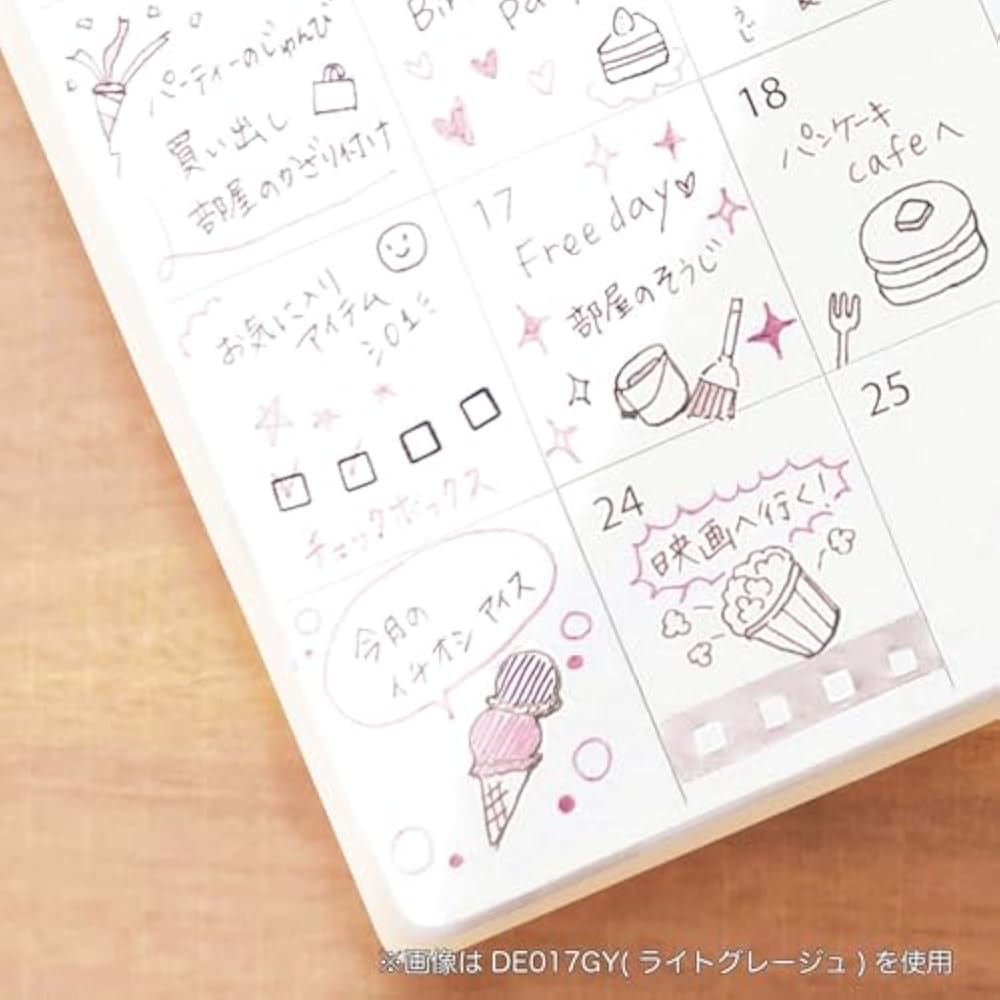 パーティーのじゅんび
買い出し
部屋のかざり付け
お気に入り
アイテム
チェックボックス
今月の
イチオシ アイス
17
Free day
部屋のそうじ
18
パンケーキ
cafeへ
24
映画へ行く!
25
※画像は DE017GY( ライトグレージュ ) を使用